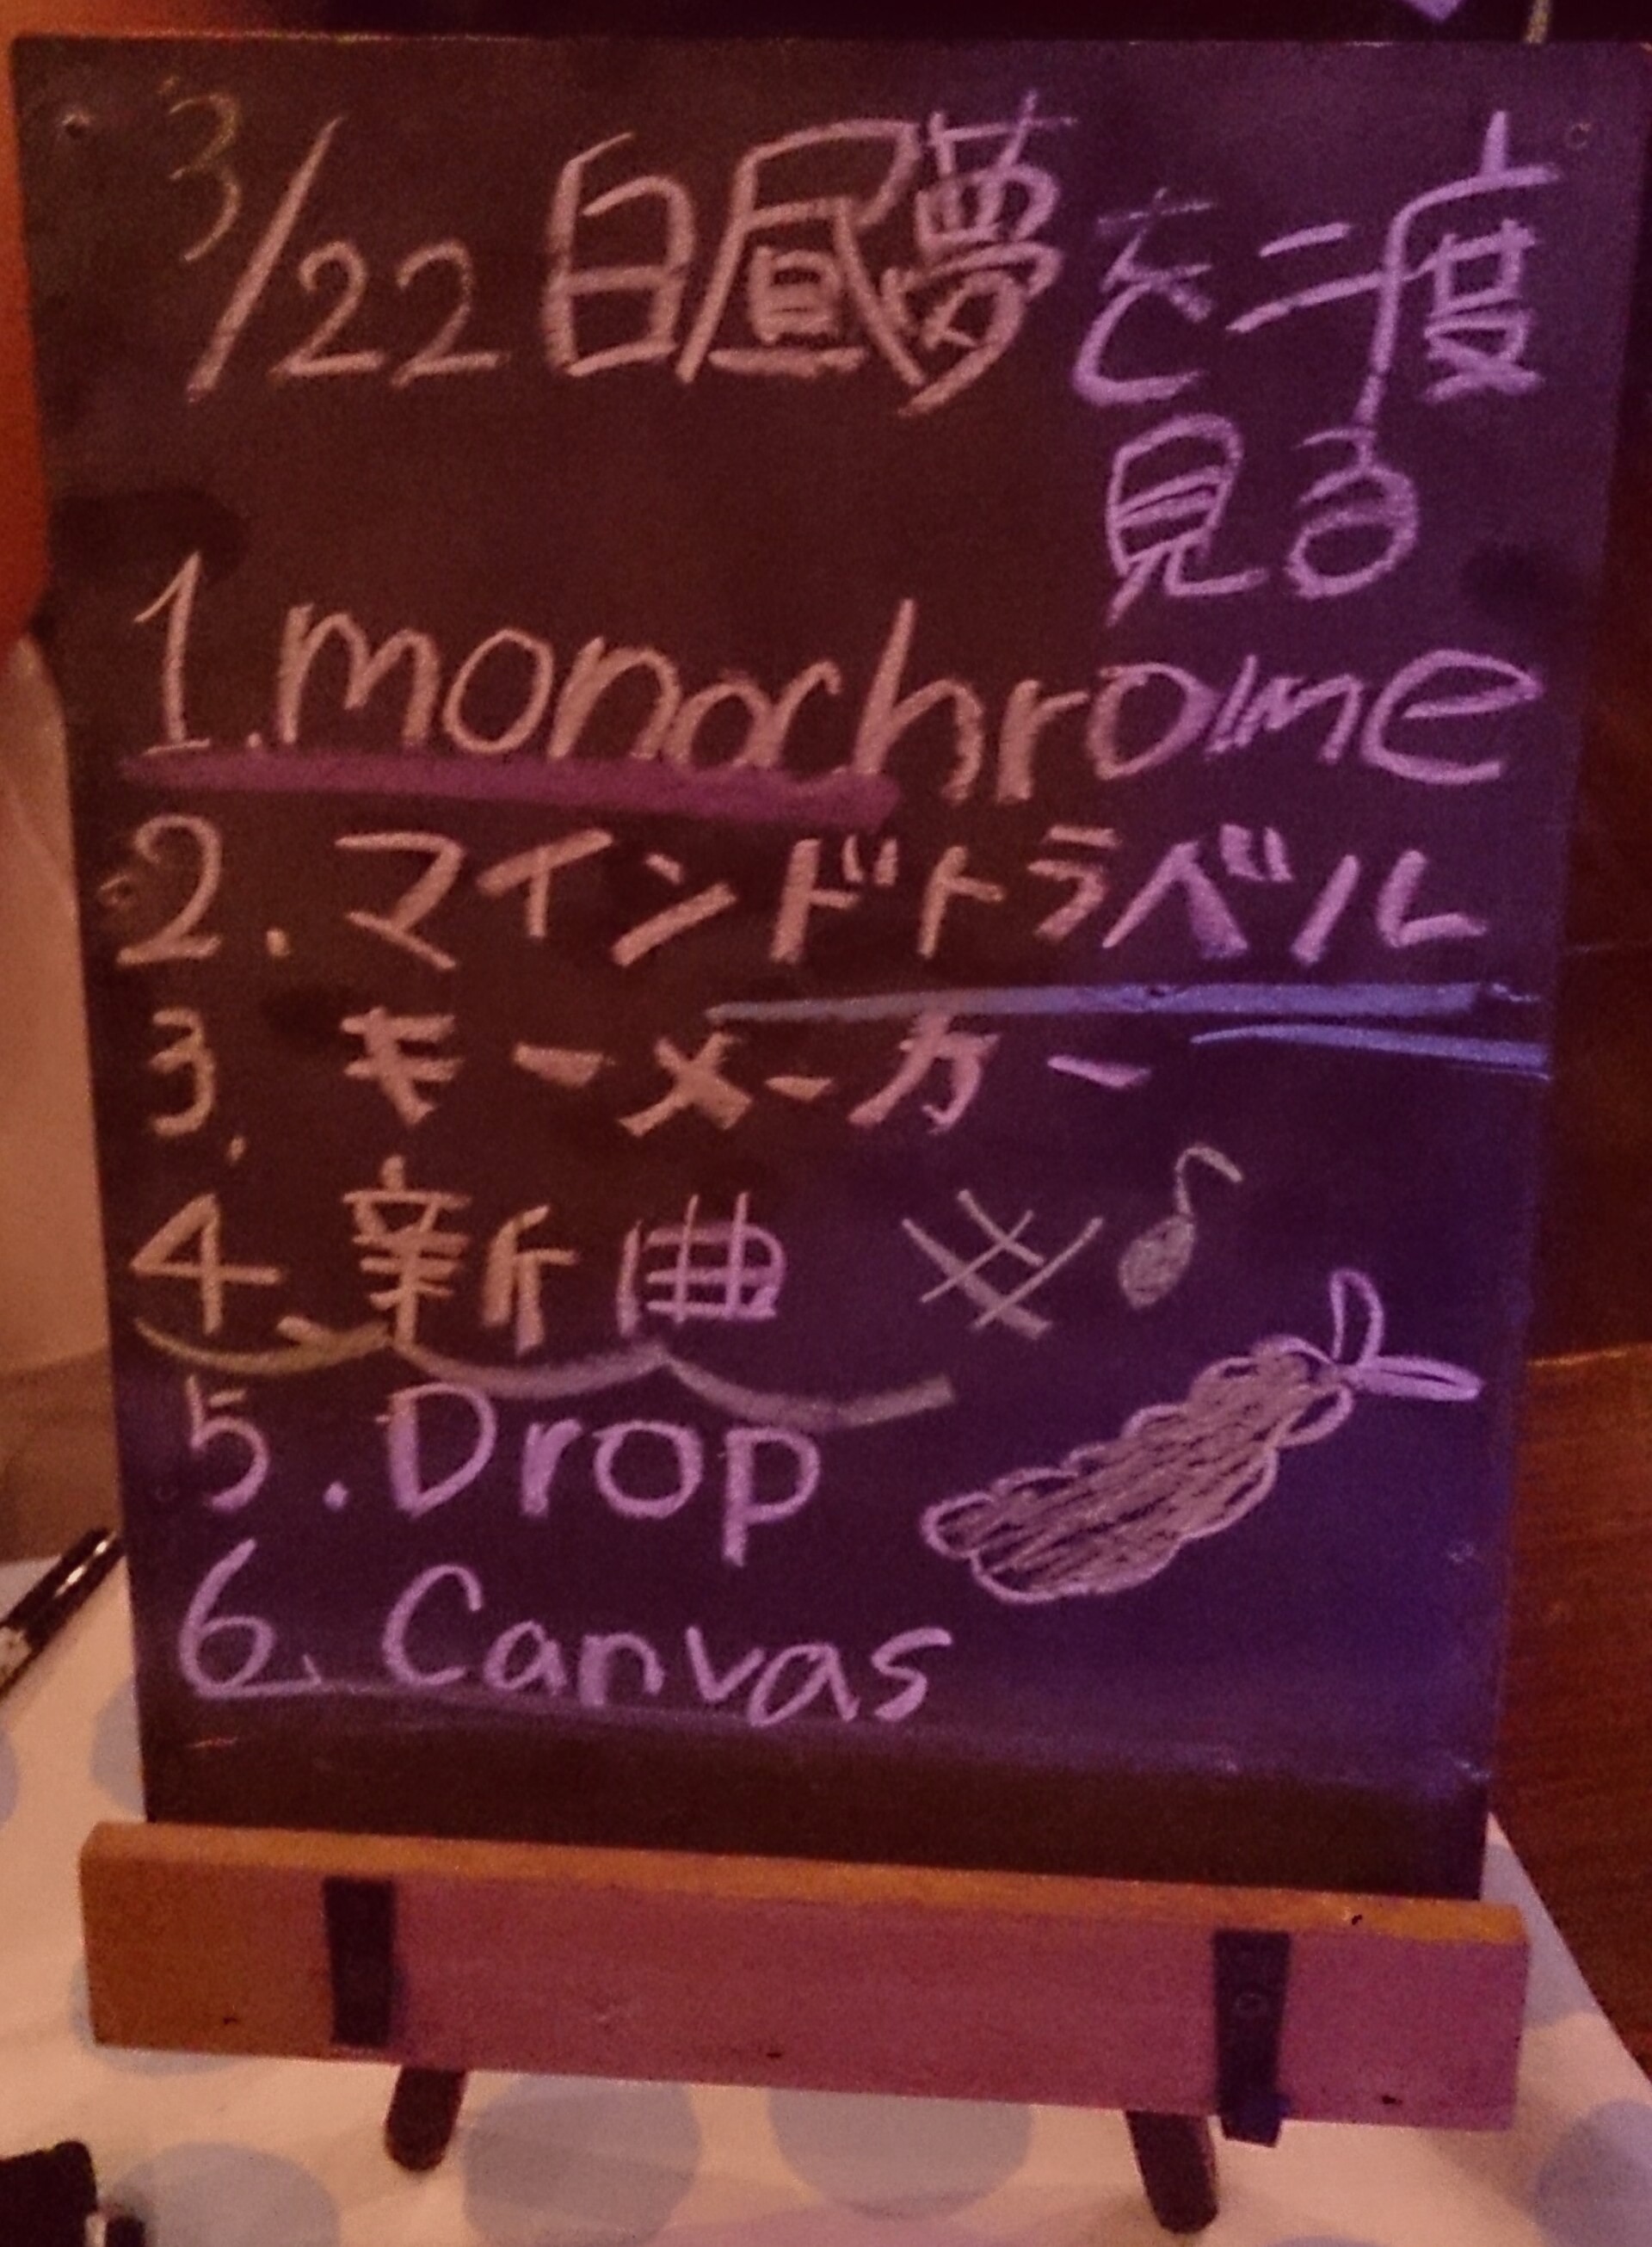 3/22 白昼夢を二度
見る
1.monochrome
2.マインドトラベル
3.モーメーカー
4.新曲
5.Drop
6.Canvas